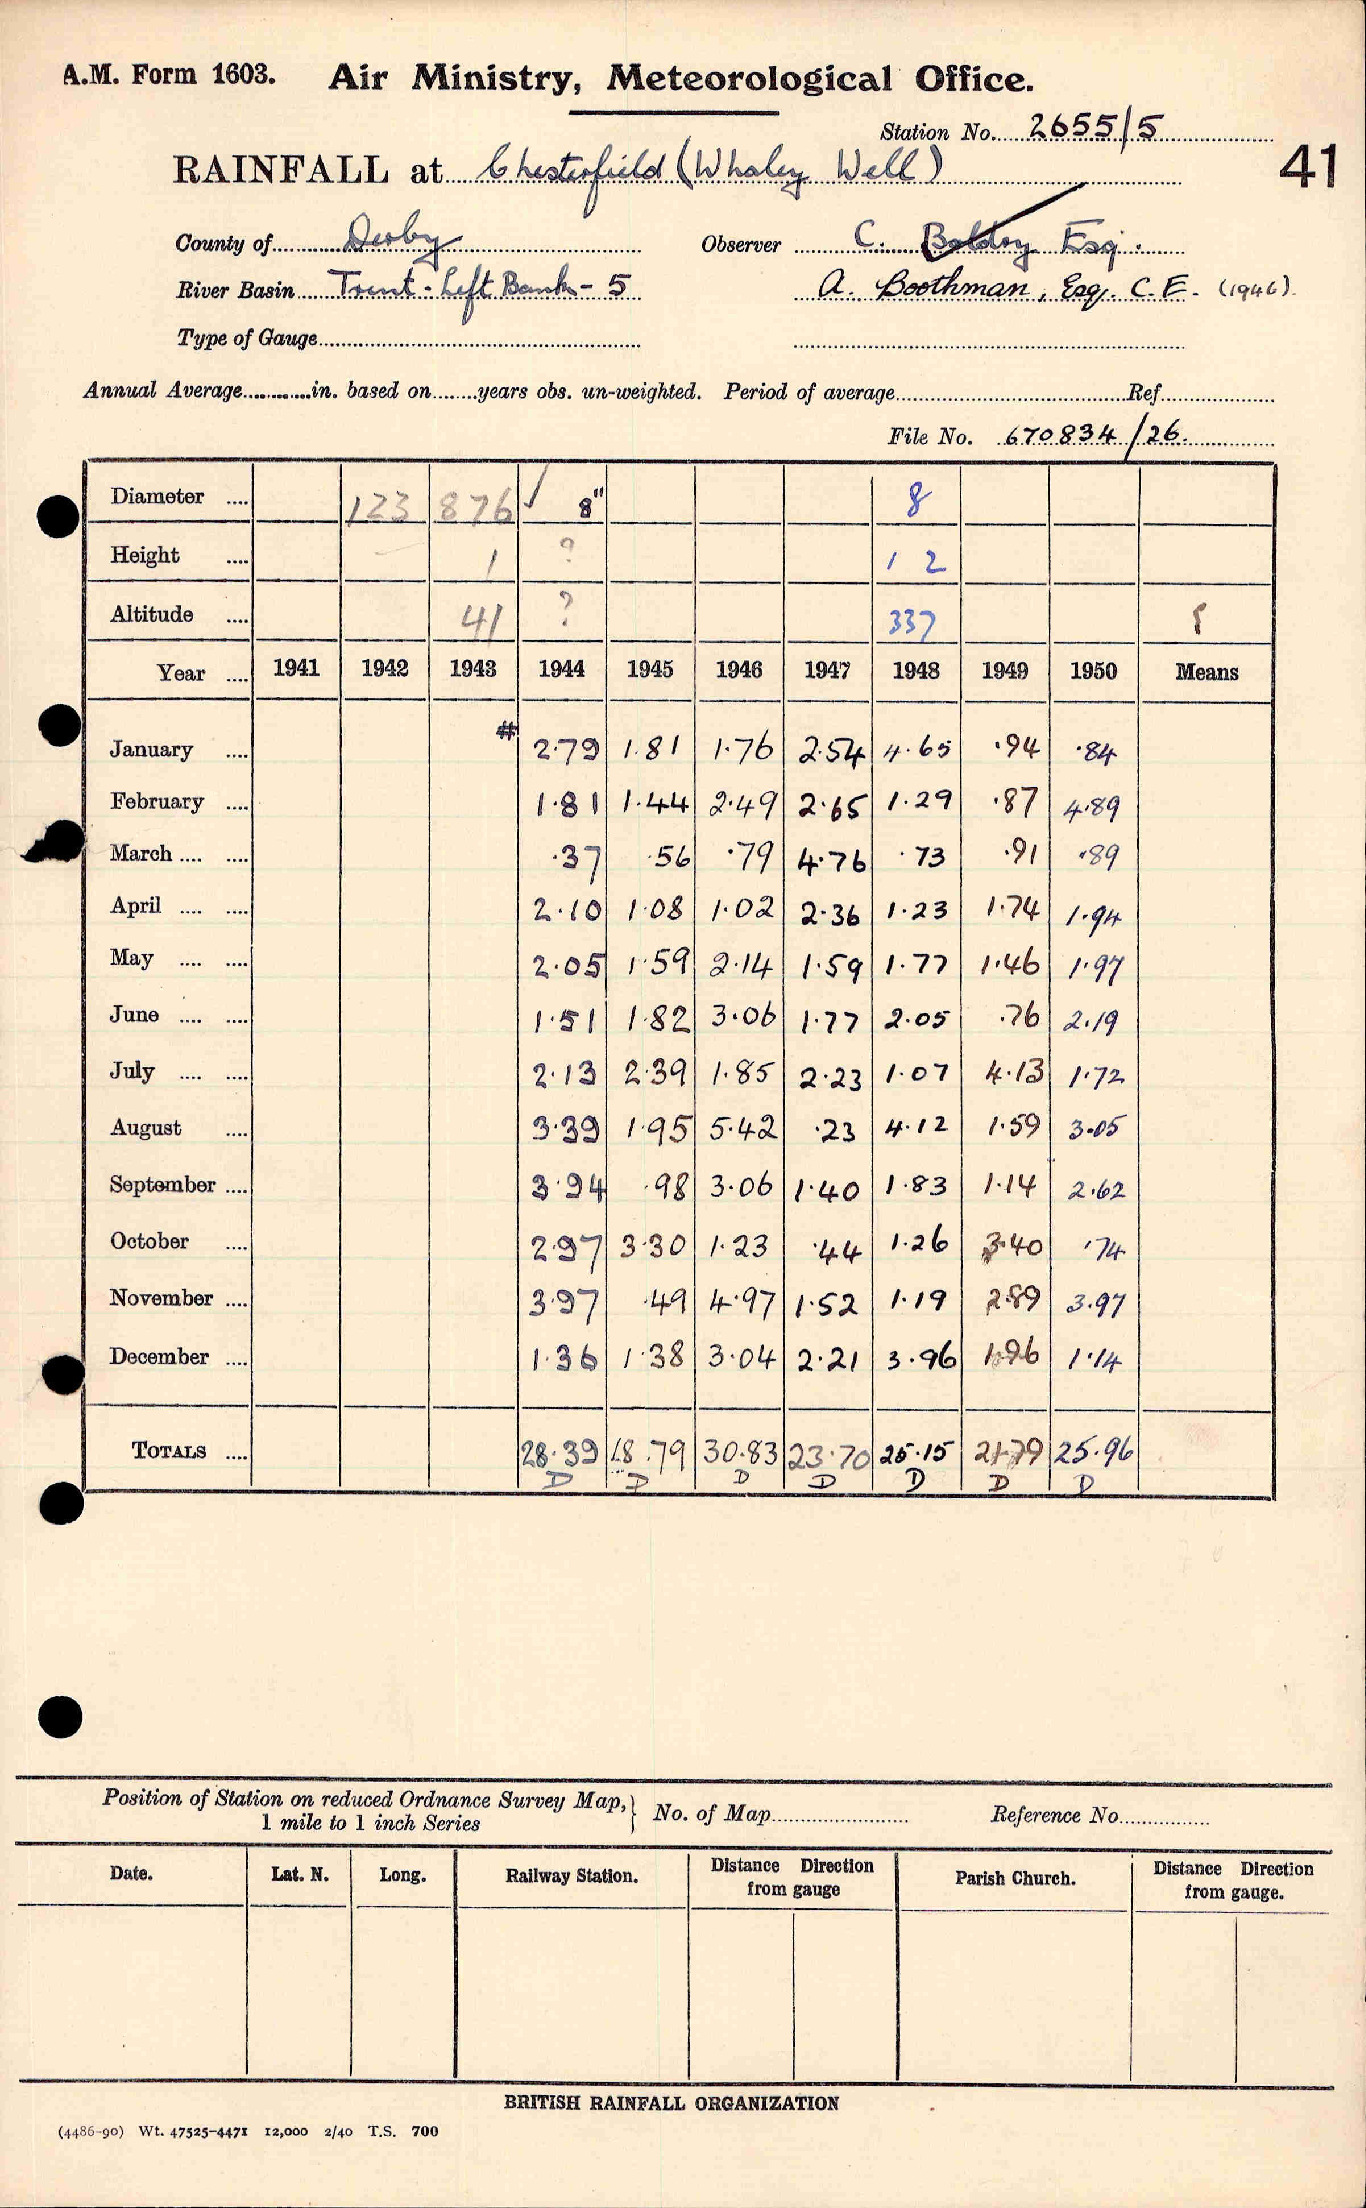 A.M. Form 1603. Air Ministry, Meteorological Office.
Station No. 2655/5
41
RAINFALL at Chesterfield (Whaley Well)
County of Derby Observer C. Boldry Esq.
River Basin Trent - Left Bank - 5 A. Boothman, Esq. C.E. (1946).
Type of Gauge
Annual Average in. based on years obs. un-weighted. Period of average Ref
File No. 670834/26.
Diameter 123 876 ✓ 8" 8
Height 1 ? 1 2
Altitude 41 ? 337
Year 1941 1942 1943 1944 1945 1946 1947 1948 1949 1950 Means
January # 2.79 1.81 1.76 2.54 4.65 .94 .84
February 1.81 1.44 2.49 2.65 1.29 .87 4.89
March .37 .56 .79 4.76 .73 .91 .89
April 2.10 1.08 1.02 2.36 1.23 1.74 1.94
May 2.05 1.59 2.14 1.59 1.77 1.46 1.97
June 1.51 1.82 3.06 1.77 2.05 .76 2.19
July 2.13 2.39 1.85 2.23 1.07 4.13 1.72
August 3.39 1.95 5.42 .23 4.12 1.59 3.05
September 3.94 .98 3.06 1.40 1.83 1.14 2.62
October 2.97 3.30 1.23 .44 1.26 3.40 .74
November 3.97 .49 4.97 1.52 1.19 2.89 3.97
December 1.36 1.38 3.04 2.21 3.96 1.96 1.14
TOTALS 28.39 18.79 30.83 23.70 25.15 21.79 25.96
D D D D D D D
Position of Station on reduced Ordnance Survey Map, 1 mile to 1 inch Series } No. of Map Reference No.
Date. Lat. N. Long. Railway Station. Distance Direction from gauge Parish Church. Distance Direction from gauge.
BRITISH RAINFALL ORGANIZATION
(4486-90) Wt. 47525-4471 12,000 2/40 T.S. 700